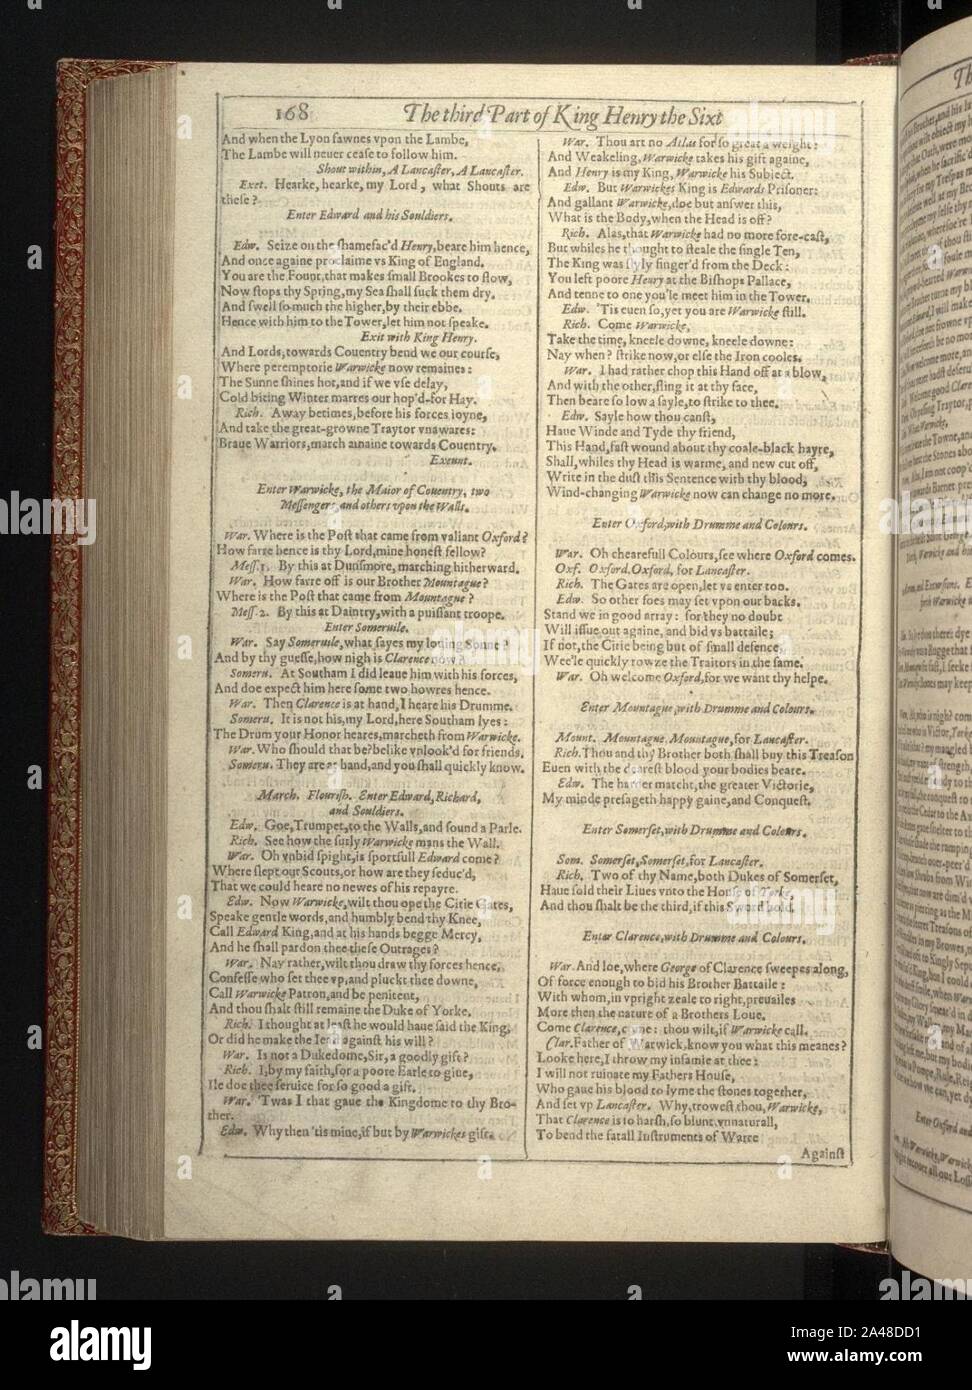 168 The third Part of King Henry the Sixt
And when the Lyon fawnes vpon the Lambe,
The Lambe will neuer cease to follow him.
Shout within, A Lancaster, A Lancaster.
Exet. Hearke, hearke, my Lord, what Shouts are
these?
Enter Edward and his Souldiers.
Edw. Seize on the shamefac'd Henry, beare him hence,
And once againe proclaime vs King of England.
You are the Fount, that makes small Brookes to flow,
Now stops thy Spring, my Sea shall suck them dry,
And swell so much the higher, by their ebbe.
Hence with him to the Tower, let him not speake.
Exit with King Henry.
And Lords, towards Couentry bend we our course,
Where peremptorie Warwicke now remaines:
The Sunne shines hot, and if we vse delay,
Cold biting Winter marres our hop'd-for Hay.
Rich. Away betimes, before his forces ioyne,
And take the great-growne Traytor vnawares:
Braue Warriors, march amaine towards Couentry.
Exeunt.
Enter Warwicke, the Maior of Couentry, two
Messengers, and others vpon the Walls.
War. Where is the Post that came from valiant Oxford?
How farre hence is thy Lord, mine honest fellow?
Mess. 1. By this at Dunsmore, marching hitherward.
War. How farre off is our Brother Mountague?
Where is the Post that came from Mountague?
Mess. 2. By this at Daintry, with a puissant troope.
Enter Someruile.
War. Say Someruile, what sayes my louing Sonne?
And by thy guesse, how nigh is Clarence now?
Someru. At Southam I did leaue him with his forces,
And doe expect him here some two howres hence.
War. Then Clarence is at hand, I heare his Drumme.
Someru. It is not his, my Lord, here Southam lyes:
The Drum your Honor heares, marcheth from Warwicke.
War. Who should that be? belike vnlook'd for friends.
Someru. They are at hand, and you shall quickly know.
March. Flourish. Enter Edward, Richard,
and Souldiers.
Edw. Goe, Trumpet, to the Walls, and sound a Parle.
Rich. See how the surly Warwicke mans the Wall.
War. Oh vnbid spight, is sportfull Edward come?
Where slept our Scouts, or how are they seduc'd,
That we could heare no newes of his repayre.
Edw. Now Warwicke, wilt thou ope the Citie Gates,
Speake gentle words, and humbly bend thy Knee,
Call Edward King, and at his hands begge Mercy,
And he shall pardon thee these Outrages?
War. Nay rather, wilt thou draw thy forces hence,
Confesse who set thee vp, and pluckt thee downe,
Call Warwicke Patron, and be penitent,
And thou shalt still remaine the Duke of Yorke.
Rich. I thought at least he would haue said the King,
Or did he make the Ieast against his will?
War. Is not a Dukedome, Sir, a goodly gift?
Rich. I, by my faith, for a poore Earle to giue,
Ile doe thee seruice for so good a gift.
War. 'Twas I that gaue the Kingdome to thy Bro-
ther.
Edw. Why then 'tis mine, if but by Warwickes gift.
War. Thou art no Atlas for so great a weight:
And Weakeling, Warwicke takes his gift againe,
And Henry is my King, Warwicke his Subiect.
Edw. But Warwickes King is Edwards Prisoner:
And gallant Warwicke, doe but answer this,
What is the Body, when the Head is off?
Rich. Alas, that Warwicke had no more fore-cast,
But whiles he thought to steale the single Ten,
The King was slyly finger'd from the Deck:
You left poore Henry at the Bishops Pallace,
And tenne to one you'le meet him in the Tower.
Edw. 'Tis euen so, yet you are Warwicke still.
Rich. Come Warwicke,
Take the time, kneele downe, kneele downe:
Nay when? strike now, or else the Iron cooles.
War. I had rather chop this Hand off at a blow,
And with the other, fling it at thy face,
Then beare so low a sayle, to strike to thee.
Edw. Sayle how thou canst,
Haue Winde and Tyde thy friend,
This Hand, fast wound about thy coale-black hayre,
Shall, whiles thy Head is warme, and new cut off,
Write in the dust this Sentence with thy blood,
Wind-changing Warwicke now can change no more.
Enter Oxford, with Drumme and Colours.
War. Oh chearefull Colours, see where Oxford comes.
Oxf. Oxford, Oxford, for Lancaster.
Rich. The Gates are open, let vs enter too.
Edw. So other foes may set vpon our backs.
Stand we in good array: for they no doubt
Will issue out againe, and bid vs battaile;
If not, the Citie being but of small defence,
Wee'le quickly rowze the Traitors in the same.
War. Oh welcome Oxford, for we want thy helpe.
Enter Mountague, with Drumme and Colours.
Mount. Mountague, Mountague, for Lancaster.
Rich. Thou and thy Brother both shall buy this Treason
Euen with the dearest blood your bodies beare.
Edw. The harder matcht, the greater Victorie,
My minde presageth happy gaine, and Conquest.
Enter Somerset, with Drumme and Colours.
Som. Somerset, Somerset, for Lancaster.
Rich. Two of thy Name, both Dukes of Somerset,
Haue sold their Liues vnto the House of Yorke,
And thou shalt be the third, if this Sword hold.
Enter Clarence, with Drumme and Colours.
War. And loe, where George of Clarence sweepes along,
Of force enough to bid his Brother Battaile:
With whom, in vpright zeale to right, preuailes
More then the nature of a Brothers Loue.
Come Clarence, come: thou wilt, if Warwicke call.
Clar. Father of Warwick, know you what this meanes?
Looke here, I throw my infamie at thee:
I will not ruinate my Fathers House,
Who gaue his blood to lyme the stones together,
And set vp Lancaster. Why, trowest thou, Warwicke,
That Clarence is so harsh, so blunt, vnnaturall,
To bend the fatall Instruments of Warre
Against
alamy
Image ID: 2A48DD1
www.alamy.com